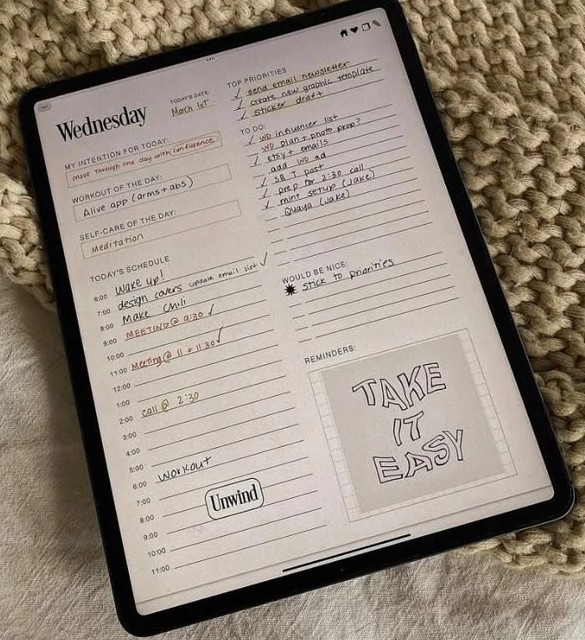 Wednesday
TODAY'S DATE:
March 1st
MY INTENTION FOR TODAY:
move through the day with confidence
WORKOUT OF THE DAY:
Alive app (arms + abs)
SELF-CARE OF THE DAY:
Meditation
TODAY'S SCHEDULE
6:00 Wake up!
7:00 design covers update email list ✓
8:00 Make Chili
9:00 MEETING @ 9:30 ✓
10:00
11:00 Meeting @ 11 + 11:30 ✓
12:00
1:00
2:00 call @ 2:30
3:00
4:00
5:00 workout
6:00
7:00
8:00
Unwind
9:00
10:00
11:00
TOP PRIORITIES
✓ send email newsletter
✓ create new graphic template
✓ sticker draft
TO DO:
✓ WD influencer list
WD plan + photo prop?
✓ etsy + emails
add WD ad
✓ SB T post
✓ prep for 2:30 call
✓ mint setup (Jake)
(Jake)
WOULD BE NICE:
✸ stick to priorities
REMINDERS:
TAKE
IT
EASY